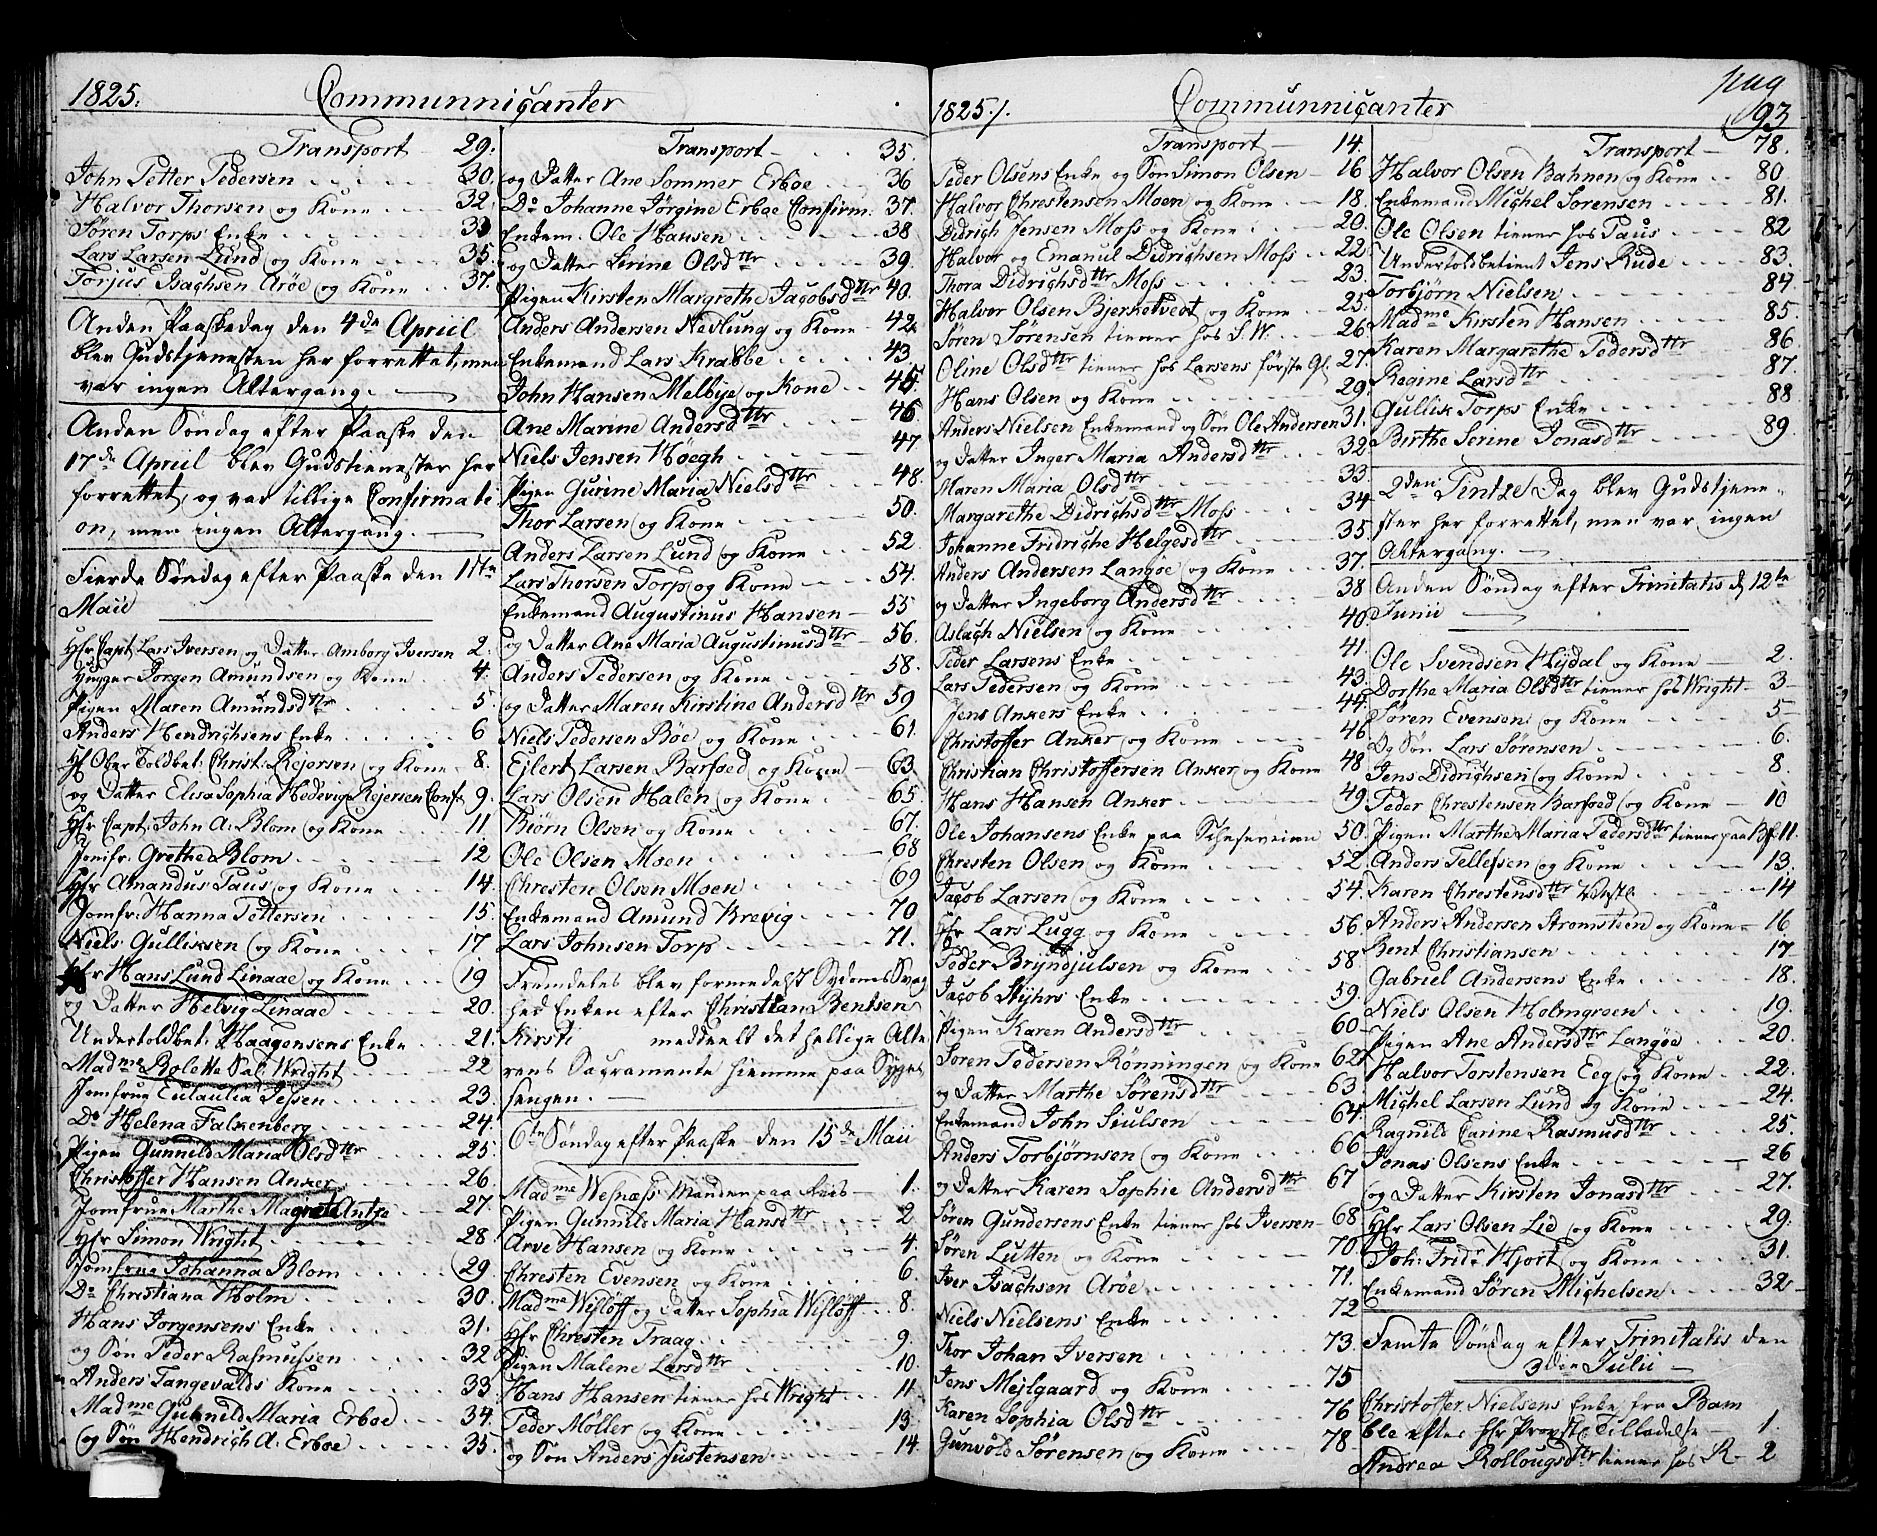 1825.
Communniçanter
Transport 29.
John Petter Pedersen 30.
Halvor Thorsen og Kone 32.
Søren Torps Enke 33
Lars Larsen Lund og Kone 35.
Torjus Isachsen Arøe og Kone 37.
Anden Paaskedag den 4de Apriil
blev Gudstjenesten her forrettet, men
var ingen Altergang.
Anden Søndag efter Paaske den
17de Apriil blev Gudstienester her
forrettet, og var tillige Confirmati
on, men ingen Altergang.
Fierde Søndag efter Paaske den 1ste
Maii
Hr Capt. Lars Iversen og Datter Amborg Iversen 2.
Hugger Jørgen Amundsen og Kone 4.
Pigen Maren Amundsdttr 5.
Anders Hendrichsens Enke 6
Hr Ober Toldbet. Christ. Rejersen og Kone 8.
og Datter Elisa Sophia Hedevig Rejersen Conf. 9.
Hr Capt. John A. Blom og Kone 11
Jomfr. Grethe Blom 12
Hr Amandus Paus og Kone 14.
Jomfr. Hanna Pettersen 15.
Niels Gulliksen og Kone 17
Hr Hans Lund Linaae og Kone 19
og Datter Helvig Linaae 20.
Undertoldbet. Haagensens Enke 21.
Madme Bolette Sal. Wright 22
Jomfrue Eulaulia Jessen 23.
Do Helena Falkenberg 24.
Pigen Gunnild Maria Olsdttr 25.
Christoffer Hansen Anker 26.
Jomfrue Marthe 27.
Hr Simon Wright 28
Jomfrue Johanna Blom 29.
Do Christiana Holm 30.
Hans Jorgensens Enke 31.
og Søn Peder Rasmussen 32.
Anders Tangevalds Kone 33.
Madme Gunild Maria Erboe 34.
og Søn Hendrich A. Erboe 35.
Transport 35.
og Datter Ane Sommer Erboe 36
Do Johanne Jørgine Erboe Confirm. 37.
Enkem. Ole Hansen 38
og Datter Serine Olsdttr 39.
Pigen Kirsten Margrethe Jacobsdttr 40.
Anders Andersen Nedlung og Kone 42.
Enkemand Lars Krabbe 43
John Hansen Melbye og Kone 45.
Ane Marine Andersdttr 46
Niels Jensen Høegh 47
Pigen Gurine Maria Nielsdttr 48
Thor Larsen og Kone 50.
Anders Larsen Lund og Kone 52
Lars Thorsen Torp og Kone 54.
Enkemand Augustinus Hansen 55
og Datter Ane Maria Augustinusdttr 56.
Anders Pedersen og Kone 58.
og Datter Maren Kirstine Andersdttr 59
Niels Pedersen Bøe og Kone 61.
Ejlert Larsen Barfoed og Kone 63.
Lars Olsen Halen og Kone 65.
Biørn Olsen og Kone 67.
Ole Olsen Moen 68
Christen Olsen Moen 69
Enkemand Amund Krevig 70
Lars Johnsen Torp 71.
Fremdeles blev formedelst Sygdoms Svag
hed Enken efter Christian Bentsen
Kirsti meddeelt det hellige Alte
rens Sacramente hiemme paa Syge
sengen.
6te Søndag efter Paaske den 15de Maii
Madme Wesnæss Manden paa Reis 1.
Pigen Gunnild Maria Hansdttr 2
Arve Hansen og Kone 4.
Chresten Evensen og Kone 6.
Madme Wisløff og Datter Sophia Wisløff 8.
Hr Chresten Traag 9.
Pigen Malene Larsdttr 10.
Hans Hansen tiener hos Wright 11.
Peder Møller og Kone 13.
og Søn Anders Justensen 14.
1825.
Communniçanter
pag
93
Transport 14.
Peder Olsens Enke og Søn Simon Olsen 16
Halvor Chrestensen Moen og Kone 18.
Didrich Jensen Moss og Kone 20.
Halvor og Emanul Didrichsen Moss 22.
Thora Didrichsdttr Moss 23.
Halvor Olsen Bjerketvedt og Kone 25.
Søren Sørensen tiener hos S. W. 26
Oline Olsdttr tiener hos Larsens første Gl. 27.
Hans Olsen og Kone 29.
Anders Nielsen Enkemand og Søn Ole Andersen 31.
og Datter Inger Maria Andersdttr 32.
Maren Maria Olsdttr 33
Margarethe Didrichsdttr Moss 34
Johanne Fridriche Helgesdttr 35.
Anders Andersen Langøe og Kone 37.
og Datter Ingeborg Andersdttr 38
Aslach Nielsen og Kone 40
Peder Larsens Enke 41.
Lars Pedersen og Kone 43.
Jens Ankers Enke 44.
Christoffer Anker og Kone 46
Christian Christoffersen Anker og Kone 48
Hans Hansen Anker 49
Ole Johansens Enke paa 50.
Chresten Olsen og Kone 52.
Jacob Larsen og Kone 54.
Hr Lars Lugg og Kone 56.
Peder Bryndjulsen og Kone 58.
Jacob Styhrs Enke 59.
Pigen Karen Andersdttr 60
Søren Pedersen Rönningen og Kone 62.
og Datter Marthe Sørensdttr 63
Enkemand John Siulsen 64.
Anders Torbjørnsen og Kone 66
og Datter Karen Sophie Andersdttr 67
Søren Gundersens Enke tiener hos Iversen 68
Søren Lutten og Kone 70.
Iver Isachsen Arøe 71.
Niels Nielsens Enke 72
Thor Johan Iversen 73.
Jens Mejlgaard og Kone 75
Karen Sophia Olsdttr 76
Gunvold Sørensen og Kone 78
Transport 78.
Halvor Olsen Bahnen og Kone 80
Enkemand Michel Sørensen 81.
Ole Olsen tiener hos Paus 82
Undertoldbetient Jens Rude 83.
Torbjørn Nielsen 84.
Madme Kirsten Hansen 85.
Karen Margarethe Pedersdttr 86
Regine Larsdttr 87.
Gullik Torps Enke 88
Birthe Serine Jonasdttr 89
2den Pintze Dag blev Gudstjene-
ster her forrettet, men var ingen
Altergang.
Anden Søndag efter Trinitatis d 12te
Junii
Ole Svendsen Hijdal og Kone 2.
Dorthe Maria Olsdttr tiener hos Wright 3
Søren Evensen og Kone 5
Og Søn Lars Sørensen 6.
Jens Didrichsen og Kone 8.
Peder Chrestensen Barfoed og Kone 10
Pigen Marthe Maria Pedersdttr tiener paa 11.
Anders Tellefsen og Kone 13.
Karen Chrestensdttr 14
Anders Andersen Stromsteen og Kone 16.
Bent Christiansen 17
Gabriel Andersens Enke 18.
Niels Olsen Holmgreen 19.
Pigen Ane Andersdttr Langøe 20.
Halvor Torstensen Eeg og Kone 22.
Michel Larsen Lund og Kone 24.
Ragnild Carine Rasmusdttr 25.
Jonas Olsens Enke 26
og Datter Kirsten Jonasdttr 27.
Hr Lars Olsen Lid og Kone 29.
Joh: Fridr Hjort og Kone 31.
Enkemand Søren Michelsen 32
Femte Søndag efter Trinitatis den
3den Julii
Christoffer Nielsens Enke fra Bam
ble efter Hr Provst Tilladelse 1.
Andrea Rollougsdttr tiener hos R 2